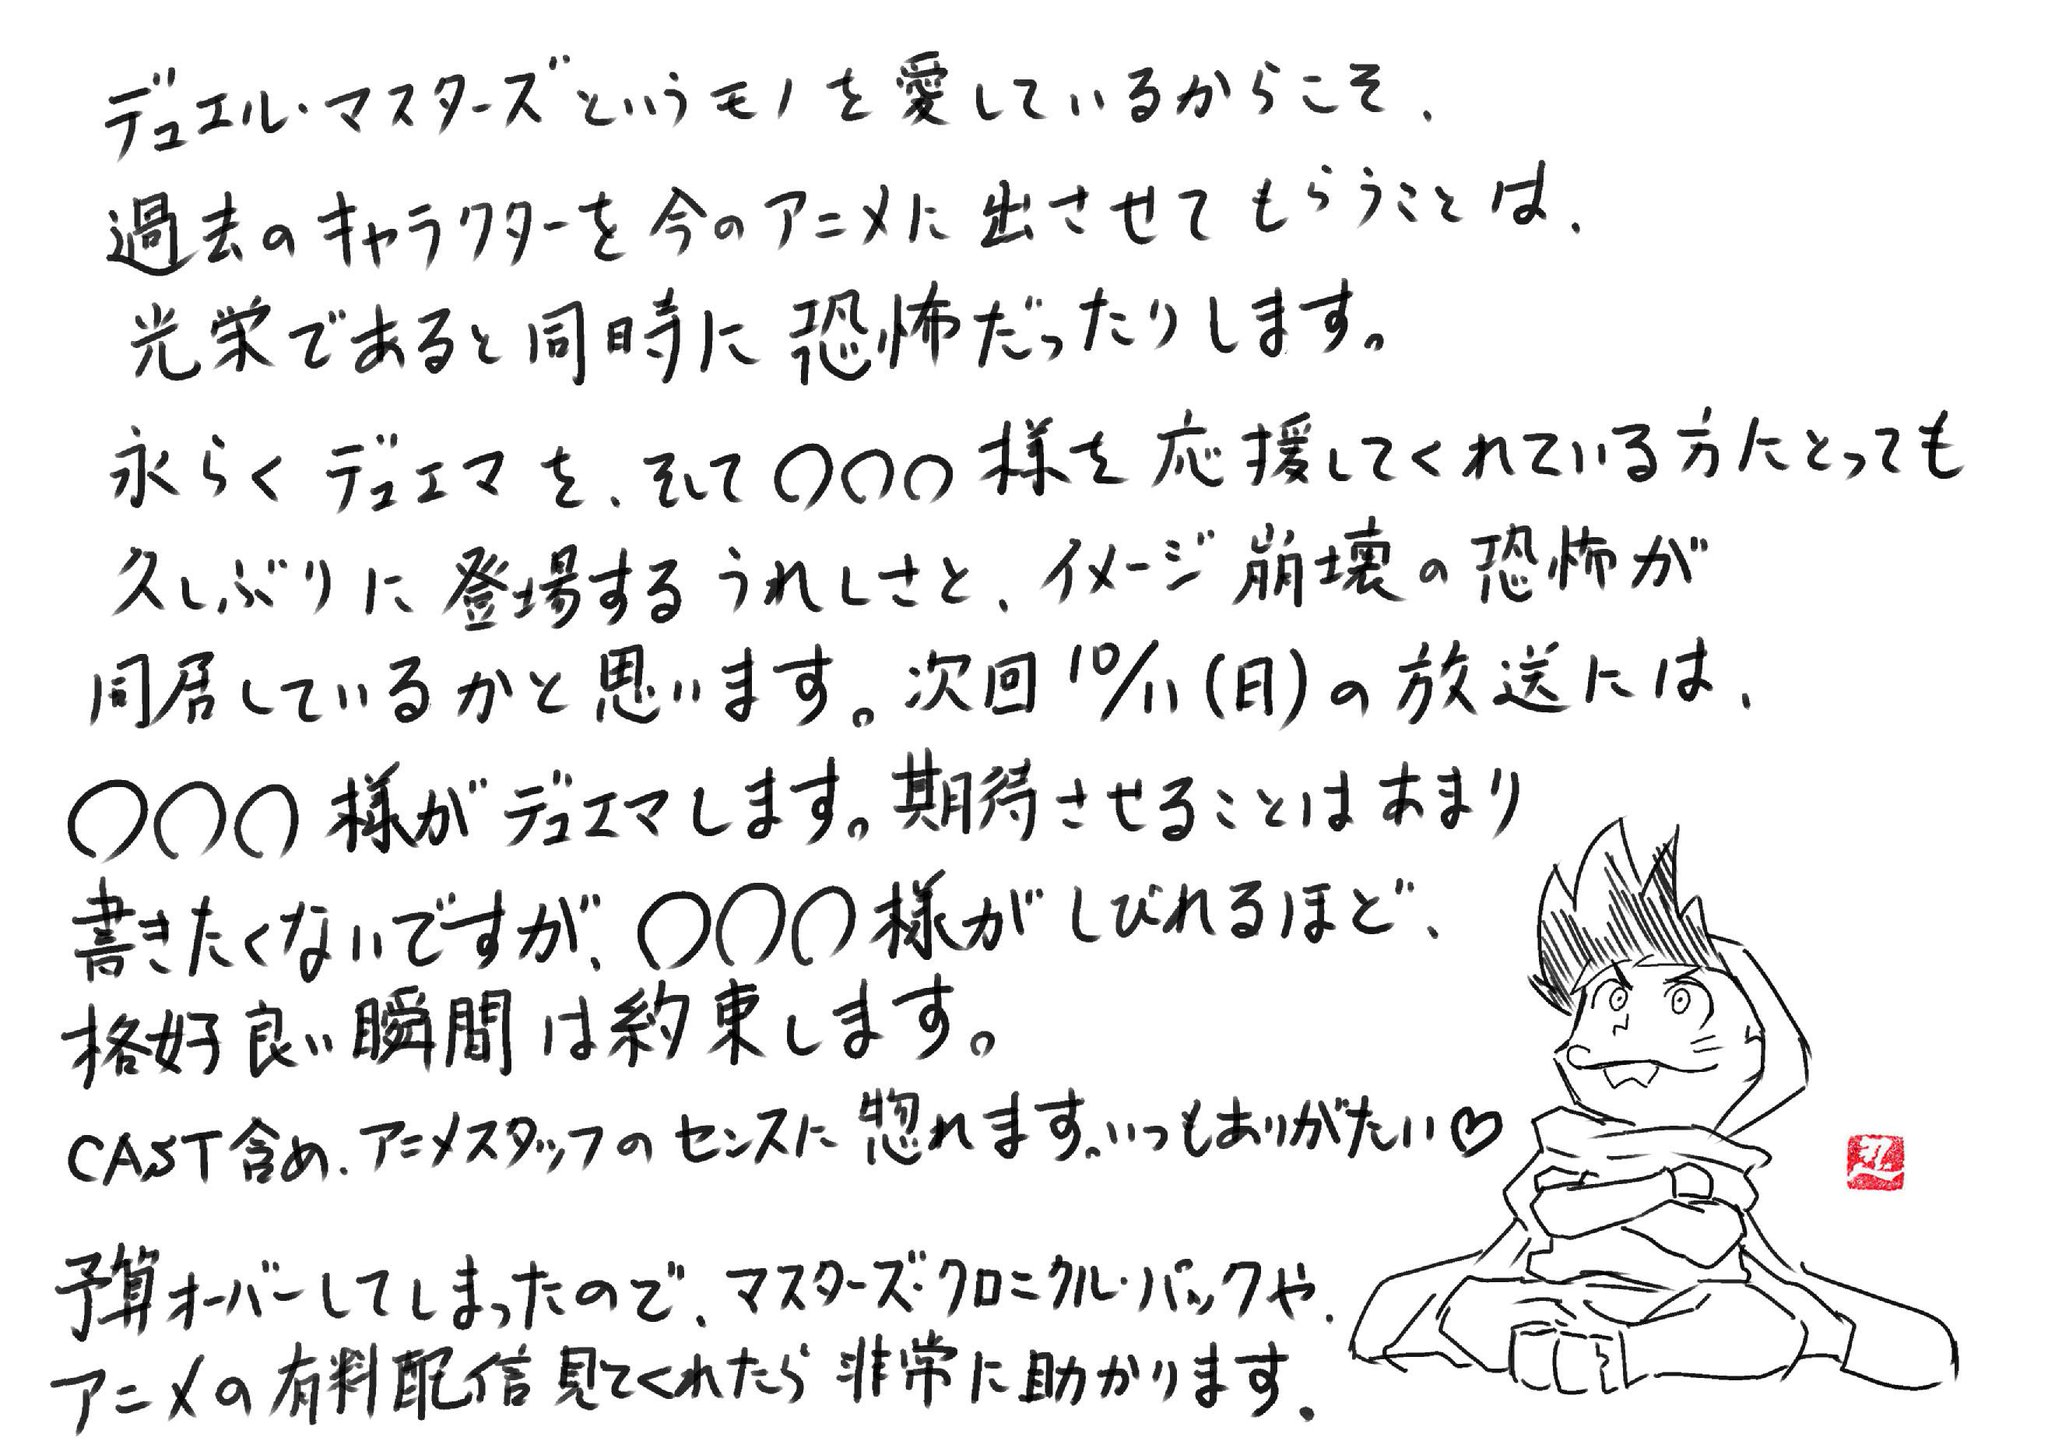 デュエル・マスターズというモノを愛しているからこそ、
過去のキャラクターを今のアニメに出させてもらうことは、
光栄であると同時に恐怖だったりします。
永らくデュエマを、そして〇〇〇様を応援してくれている方たとっても
久しぶりに登場するうれしさと、イメージ崩壊の恐怖が
同居しているかと思います。次回10/11(日)の放送には、
〇〇〇様がデュエマします。期待させることはあまり
書きたくないですが、〇〇〇様がしびれるほど、
格好良い瞬間は約束します。
CAST含め、アニメスタッフのセンスに惚れます。いつもありがたい♡
予算オーバーしてしまったので、マスターズ・クロニクル・パックや、
アニメの有料配信見てくれたら非常に助かります。